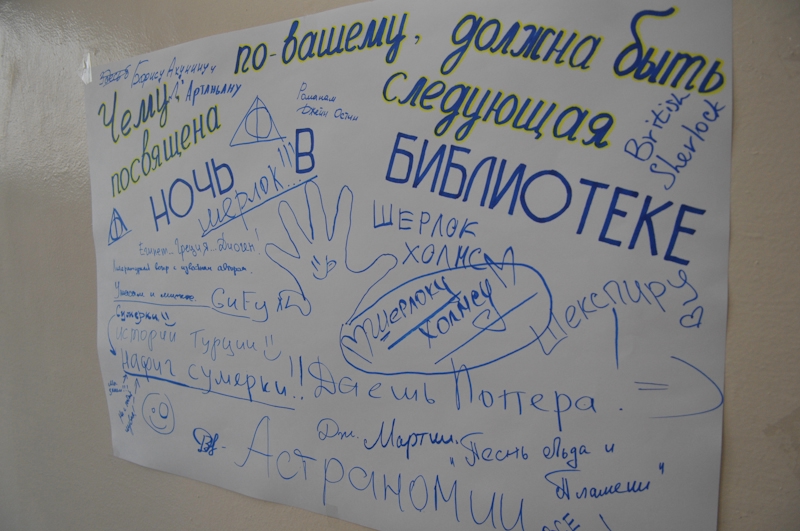 Чему, по-вашему, должна быть
посвящена следующая
НОЧЬ В БИБЛИОТЕКЕ
Борису Акунину и
Д'Артаньяну
Романам
Джейн Остин
British
Sherlock
Шерлок!!!
ШЕРЛОК
ХОЛМС
Египет... Греция...
Литературный вечер с
Ужастик и
Сумерки
GuFy
Шерлоку
Холмсу
Шекспиру
истории Турции
нафиг сумерки!!
Даешь Поттера. =)
Дж. Мартин.
"Песнь Льда и
Пламени"
Астраномии